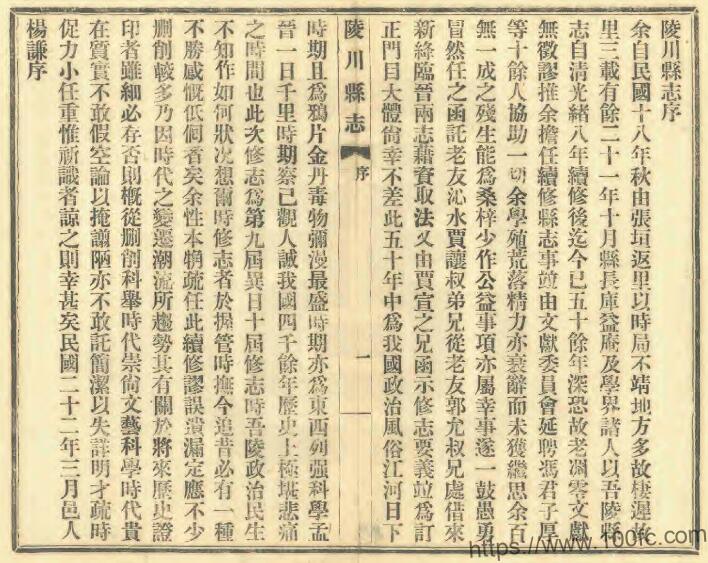 陵川縣志序
余自民國十八年秋由張垣返里以時局不靖地方多故棲遲故
里三載有餘二十一年十月縣長庫益庵及學界諸人以吾陵縣
志自清光緒八年續修後迄今已五十餘年深恐故老凋零文獻
無徵謬推余擔任續修縣志事竝由文獻委員會延聘馮君子厚
等十餘人協助一切余學殖荒落精力亦衰辭而未獲繼思余百
無一成之殘生能爲桑梓少作公益事項亦屬幸事遂一鼓愚勇
冒然任之函託老友沁水賈讓叔弟兄從老友郭允叔兄處借來
新絳臨晉兩志藉資取法又由賈宣之兄函示修志要義竝爲訂
正門目大體尙幸不差此五十年中爲我國政治風俗江河日下
陵川縣志
序
一
時期且爲鴉片金丹毒物彌漫最盛時期亦爲東西列强科學孟
晉一日千里時期察己觀人誠我國四千餘年歷史上極堪悲痛
之時間也此次修志爲第九屆異日十屆修志時吾陵政治民生
不知作如何狀況想爾時修志者於握管時撫今追昔必有一種
不勝感慨低佪者矣余性本犓疏任此續修謬誤遺漏定應不少
刪削較多乃因時代之變遷潮流所趨勢其有關於將來歷史證
印者雖細必存否則概從刪削科舉時代崇尙文藝科學時代貴
在質實不敢假空論以掩譾陋亦不敢託簡潔以失詳明才疏時
促力小任重惟祈識者諒之則幸甚矣民國二十二年三月邑人
楊謙序
https://www.100fc.com